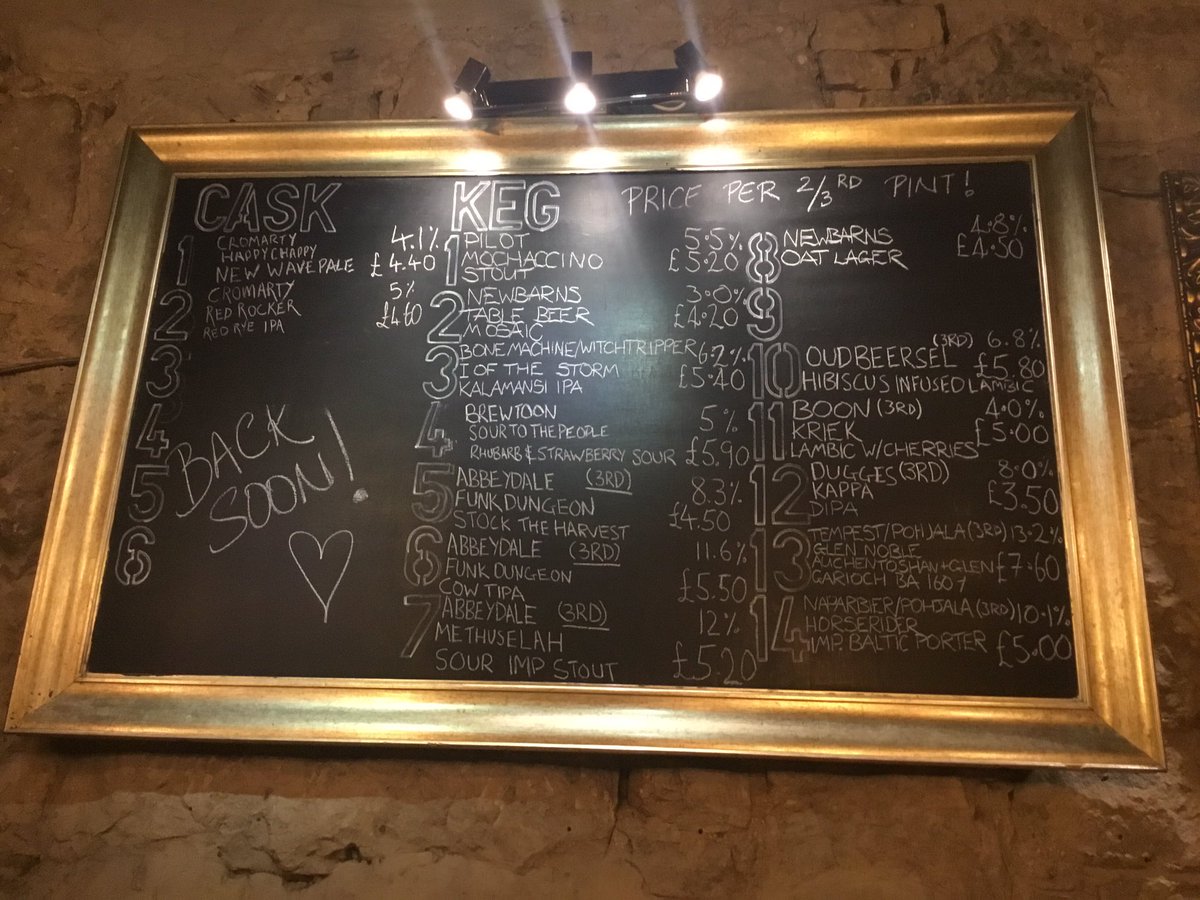 CASK
1
CROMARTY
HAPPY CHAPPY
NEW WAVE PALE
4.1%
£4.40
2
CROMARTY
RED ROCKER
RED RYE IPA
5%
3
4
5
6
BACK
SOON!
KEG
PRICE PER 2/3RD PINT!
1
PILOT
MOCHACCINO
STOUT
5.5%
£5.20
2
NEWBARNS
TABLE BEER
MOSAIC
3.0%
£4.20
3
BONE MACHINE/WITCHTRIPPER
I OF THE STORM
KALAMANSI IPA
6.2%
£5.40
4
BREWTOON
SOUR TO THE PEOPLE
RHUBARB & STRAWBERRY SOUR
5%
£5.90
5
ABBEYDALE (3RD)
FUNK DUNGEON
STOCK THE HARVEST
8.3%
£4.50
6
ABBEYDALE (3RD)
FUNK DUNGEON
COW TIPA
11.6%
£5.50
7
ABBEYDALE (3RD)
METHUSELAH
SOUR IMP STOUT
12%
£5.20
8
NEWBARNS
OAT LAGER
4.8%
£4.50
9
10
OUDBEERSEL (3RD)
HIBISCUS INFUSED LAMBIC
6.8%
£5.80
11
BOON (3RD)
KRIEK
LAMBIC W/CHERRIES
4.0%
£5.00
12
DUGGES (3RD)
KAPPA
DIPA
8.0%
£3.50
13
TEMPEST/POHJALA (3RD) 13.2%
GLEN NOBLE
AUCHENTOSHAN+GLEN
GARIOCH BA
£7.60
14
NAPARBIER/POHJALA (3RD) 10.1%
HORSERIDER
IMP. BALTIC PORTER
£5.00